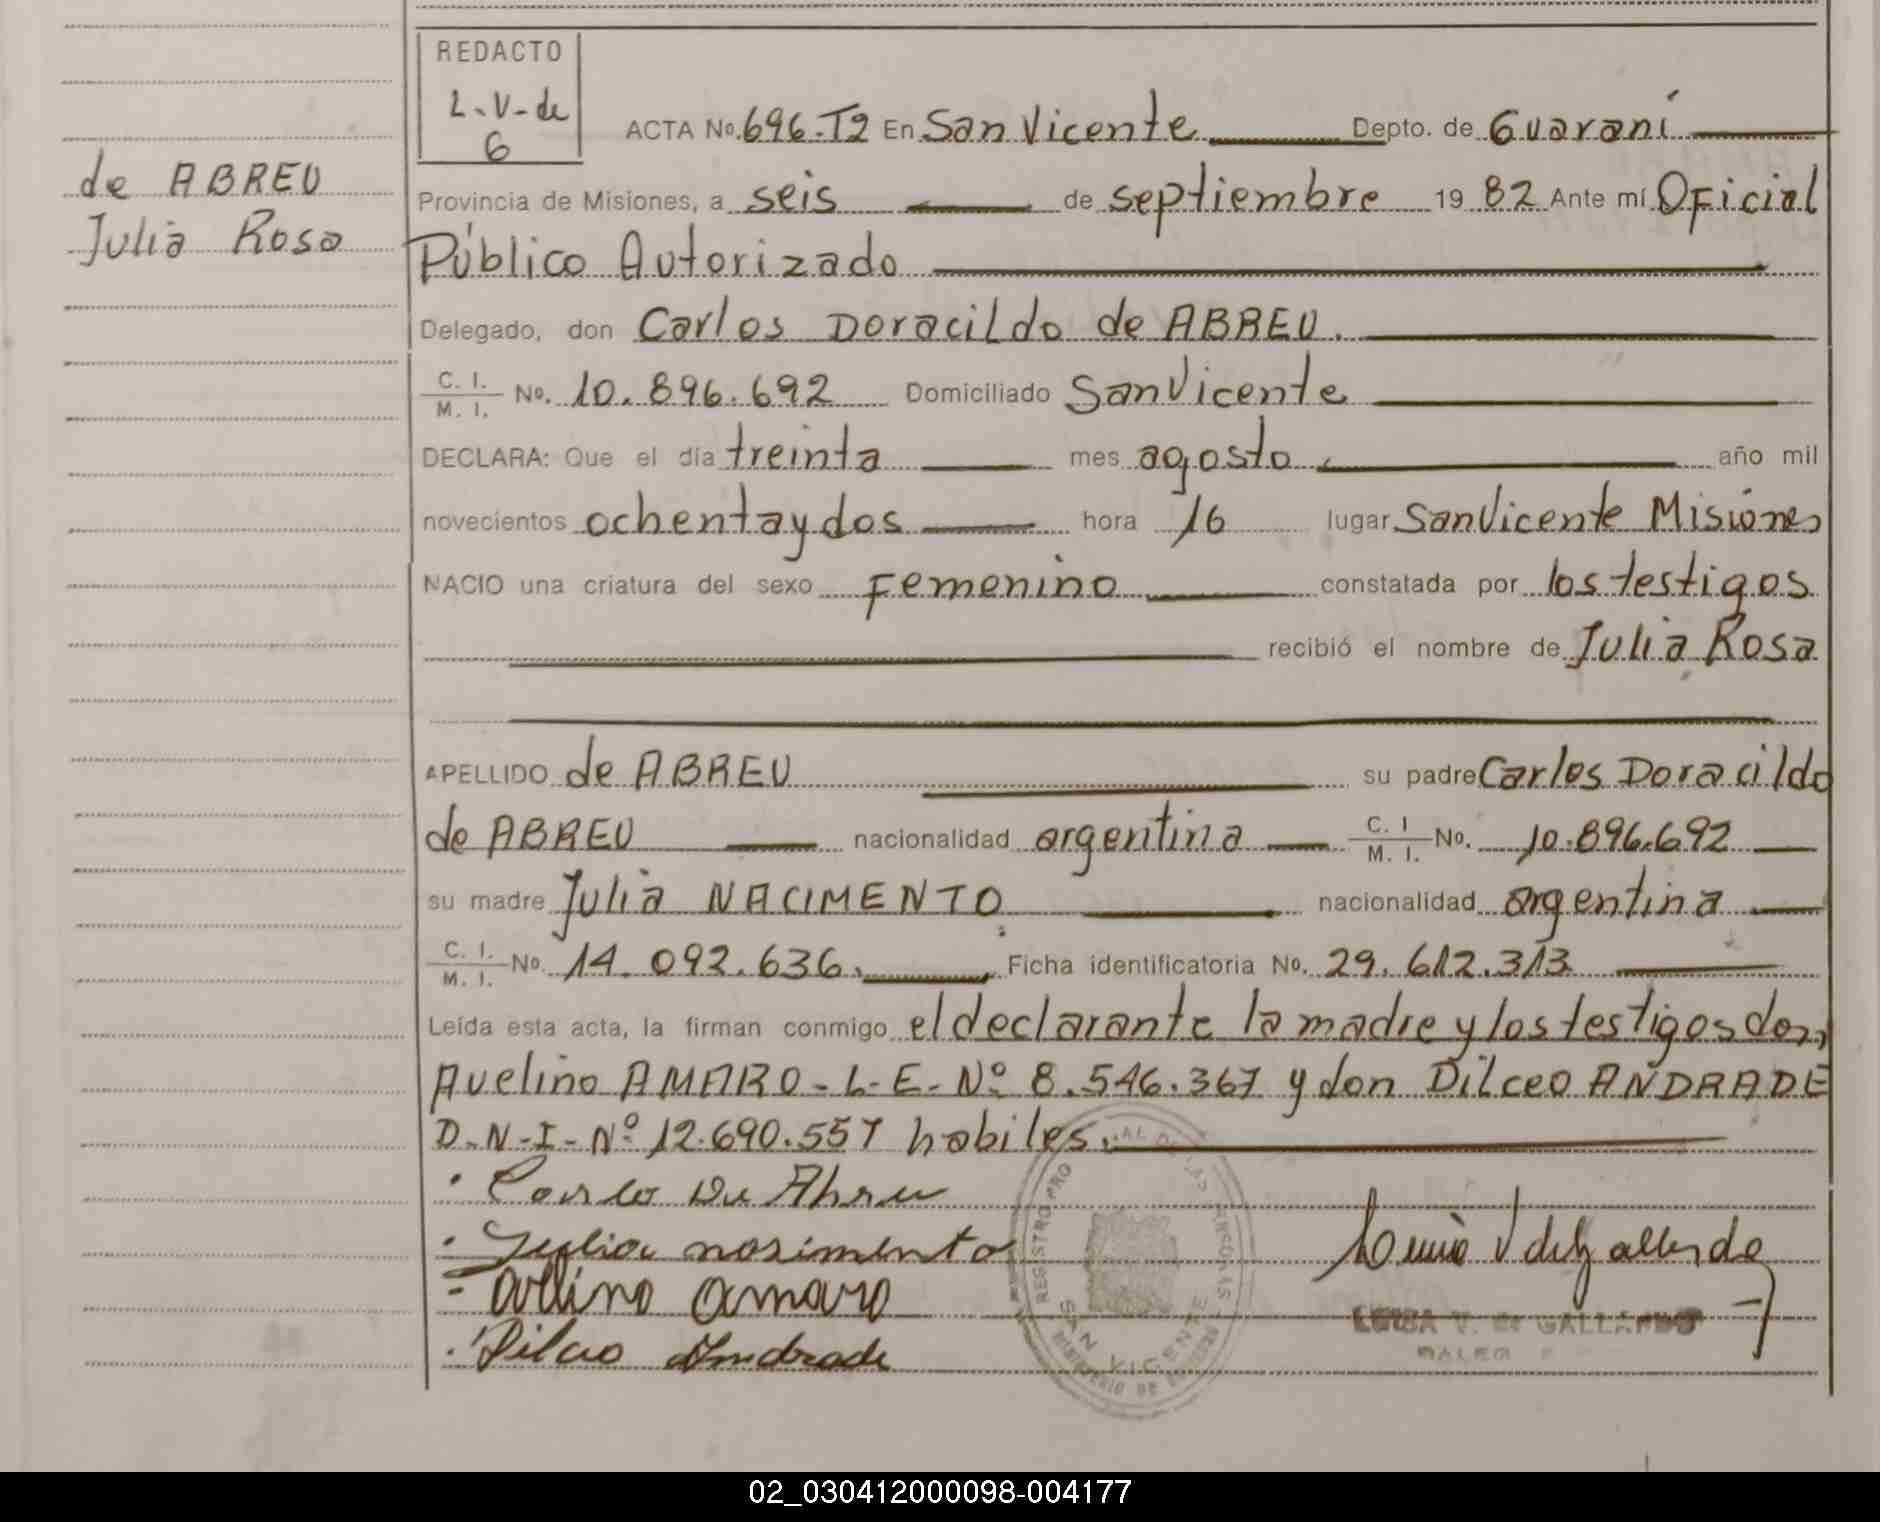 REDACTO
L-V-de
6
ACTA No. 696-T2 En San Vicente Depto. de Guaraní
de ABREU
Julia Rosa
Provincia de Misiones, a seis de septiembre 19 82 Ante mí Oficial
Público Autorizado
Delegado, don Carlos Doracildo de ABREU.
C. I.
M. I. No. 10.896.692 Domiciliado San Vicente
DECLARA: Que el día treinta mes agosto año mil
novecientos ochenta y dos hora 16 lugar San Vicente Misiones
NACIO una criatura del sexo Femenino constatada por los testigos
recibió el nombre de Julia Rosa
APELLIDO de ABREU su padre Carlos Doracildo
de ABREU nacionalidad argentina C. I
M. I. No. 10.896.692
su madre Julia NACIMENTO nacionalidad argentina
C. I.
M. I. No. 14.092.636. Ficha identificatoria No. 29.612.313
Leída esta acta, la firman conmigo el declarante la madre y los testigos don,
Avelino AMARO- L-E-Nº 8.546.367 y don Dilceo ANDRADE
D-N-I-Nº 12.690.557 habiles.
Carlos De Abreu
Julia nasimento
avelino amaro
Dilceo Andrade
LUISA V. de GALLARDO
REGISTRO PRO AL DE LAS PERSONAS
SAN VICENTE
MINISTERIO DE
02_030412000098-004177